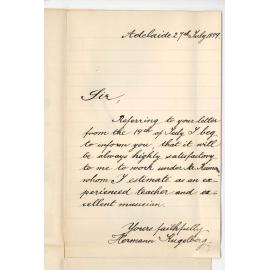 Adelaide 27th July 1889.
Sir,
Referring to your letter
from the 19th of July I beg
to inform you, that it will
be always highly satisfactory
to me to work under Mr.
whom I estimate as an ex-
perienced teacher and ex-
cellent musician.
Yours faithfully
Hermann Kugelberg.